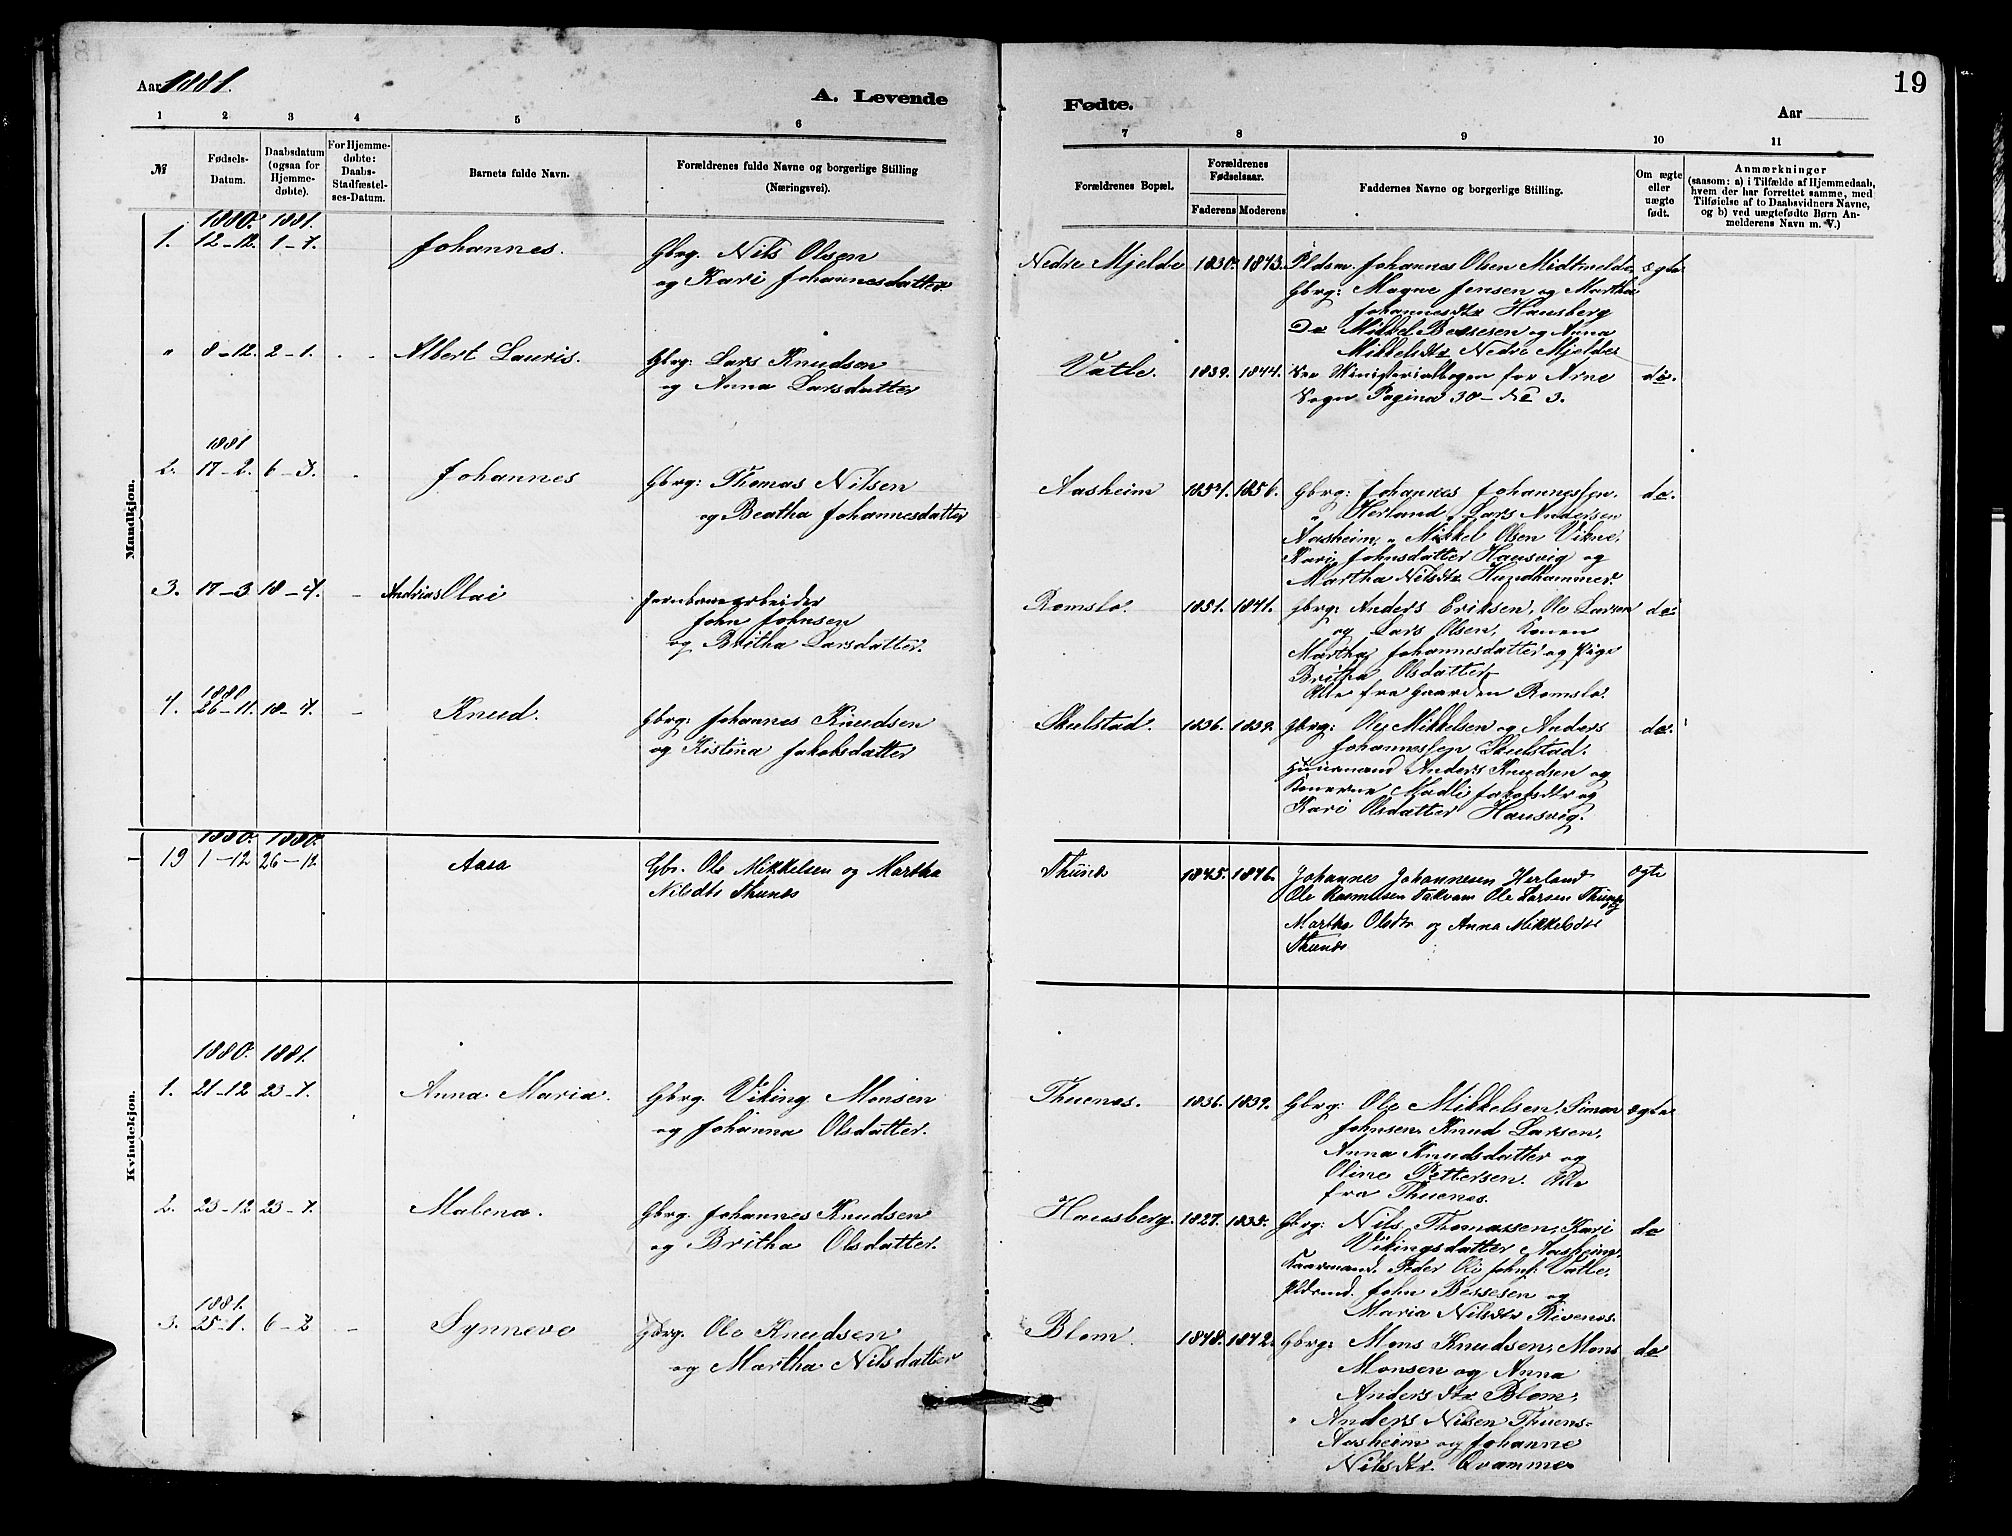 Aar 1881.
A. Levende
Fødte.
19
Aar
1 2 3 4 5 6 7 8 9 10 11
№
Fødsels-Datum.
Daabsdatum (ogsaa for Hjemmedøbte).
For Hjemmedøbte: Daabs-Stadfæstelses-Datum.
Barnets fulde Navn.
Forældrenes fulde Navne og borgerlige Stilling (Næringsvei).
Forældrenes Bopæl.
Forældrenes Fødselsaar.
Faderens Moderens
Faddernes Navne og borgerlige Stilling.
Om ægte eller uægte født.
Anmærkninger
(saasom: a) i Tilfælde af Hjemmedaab, hvem der har forrettet samme, med Tilføielse af to Daabsvidners Navne, og b) ved uægtefødte Børn Anmelderens Navn m. V.)
Mandkjøn.
1880. 1881.
1. 12-12. 1-1. Johannes. Gbrg. Nils Olsen Nedre Mjelde 1830. 1843. Pldsm. Johannes Olsen Midtmelde ægte
og Kari Johannesdatter Gbrg: Magne Jensen og Martha
Johannesdtr Hausberg
Do Mikkel Bessesen og Anna
Mikkelsdtr Nedre Mjelde
" 8-12. 2-1. - - Albert Lauris. Gbrg: Lars Knudsen Vatle. 1839. 1844. See Ministerialbogen for Arne do.
og Anna Larsdatter Sogn Pagina 30 - No 3.
1881
2. 17-2. 6-3. - Johannes Gbrg: Thomas Nilsen Aasheim 1854. 1856. Gbrg: Johannes Johannessen do.
og Beatha Johannesdatter " Herland, Lars Andersen
Aasheim, " Mikkel Olsen Vikne,
Kari Johnsdatter Hausvig og
Martha Nilsdtr Hundhammer.
3. 17-3 18-4. - Andrias Olai Jernbanearbeider Romslo. 1851. 1841. Gbrg: Anders Eriksen, Ole Larsen do
John Johnsen og Lars Olsen, Konen
og Britha Larsdatter. Martha Johannesdatter og Pige
Britha Olsdatter
Alle fra Gaarden Romslo.
1880
4. 26-11. 18-4. - Knud. Gbrg: Johannes Knudsen Skulstad. 1836. 1839. Gbrg: Ole Mikkelsen og Anders do.
og Kistina Jakobsdatter Johannessen Skulstad.
Huusmand Anders Knudsen og
Konerne Madli Jakobsdtr og
Kari Olsdatter Hausvig.
1880. 1880.
19 1-12 26-12. Aasa Gbr. Ole Mikkelsen og Martha Thunes 1845. 1846. Johannes Johannesen Herland ægte
Nilsdtr Thunes Ole Rasmusen Takvam Ole Larsen Thunes
Martha Olsdtr og Anna Mikkelsdtr
Thunes
Kvindekjøn.
1880. 1881.
1. 21-12 23-1. Anna Maria. Gbrg. Viking Monsen Thuenes. 1836. 1839. Gbrg: Ole Mikkelsen, Simon ægte
og Johanna Olsdatter. Johnsen, Knud Larsen,
Anna Knudsdatter og
Oline Pettersen. Alle
fra Thuenes.
2. 23-12 23-1. Malena. Gbrg. Johannes Knudsen Hausberg. 1827. 1835. Gbrg: Nils Thomassen, Kari do
og Britha Olsdatter. Vikingsdatter Aasheim,
Peder Ole Johns. Vatle,
John Bessesen og
Maria Nilsdtr Rivenes.
1881.
3. 25-1. 6-2 - Synneve Gbrg. Ole Knudsen Blom 1848. 1842. Gbrg: Mons Knudsen, Mons do
og Martha Nilsdatter Monsen og Anna
Andersdtr Blom,
" Anders Nilsen Thuens-
Aasheim og Johanne
Nilsdtr. Qvamme